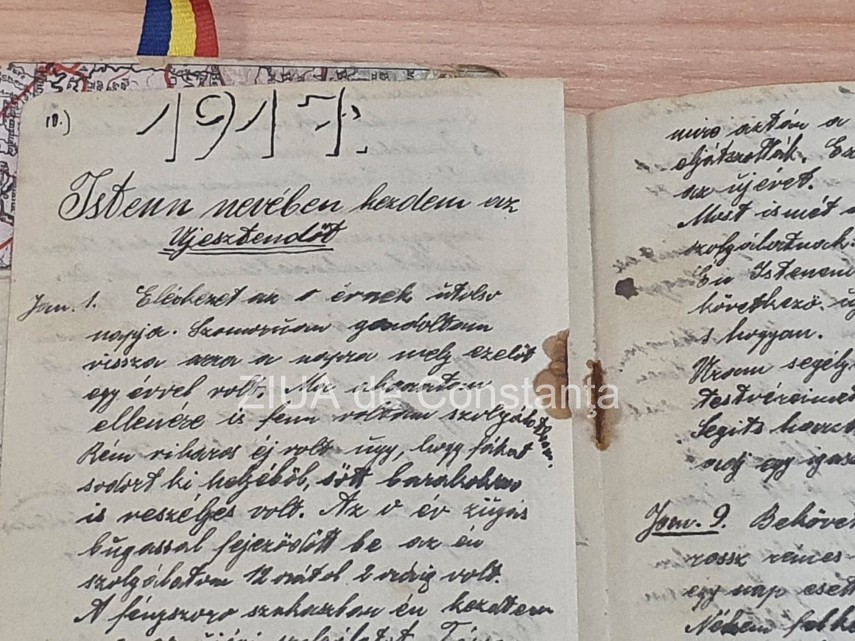 10.)
1917.
Istenn nevében kezdem az
Ujesztendőt
Jan. 1. Elérkezet az ó érnek útolso
napja. Szomorúan gondoltam
vissza arra a napra mely ezelőt
egy évvel volt. Ma akaratom
ellenére is fenn voltam szolgálatban.
Rém viharos éj volt úgy, hogy fákat
sodort ki helyéből, sőt barakokra
is veszélyes volt. Az ó év zúgás
búgással fejeződött be az én
szolgálatom 12 orától 2 oráig volt.
A fényszoro szakaszban én kezdtem
ZIUA de Constanța
mire aztán a
eljátszották. Ez
az újévet.
Most ismét a
szolgálatnak.
Én Istenem
következo
s hogyan.
segély
testvéreimet
Segits
adj egy igaz
Jan. 9. Bekövet
rossz
egy nap eset
Nékem